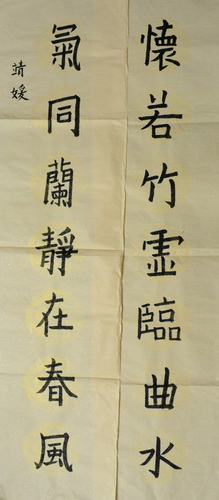 懷若竹虛臨曲水
氣同蘭靜在春風
靖媛